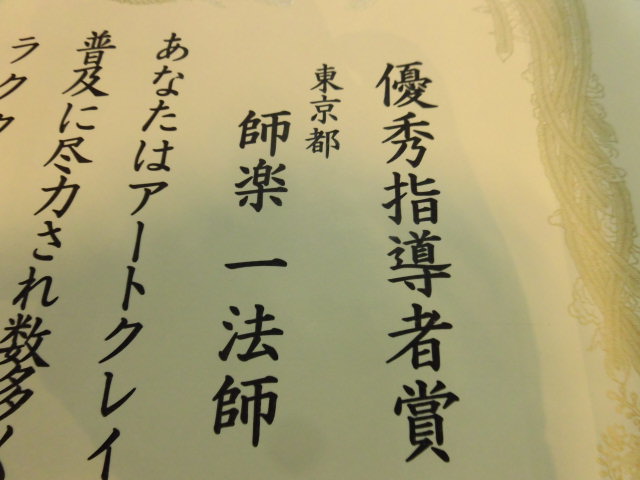 優秀指導者賞
東京都
師楽 一法師
あなたはアートクレイ
普及に尽力され数多く
ラクク